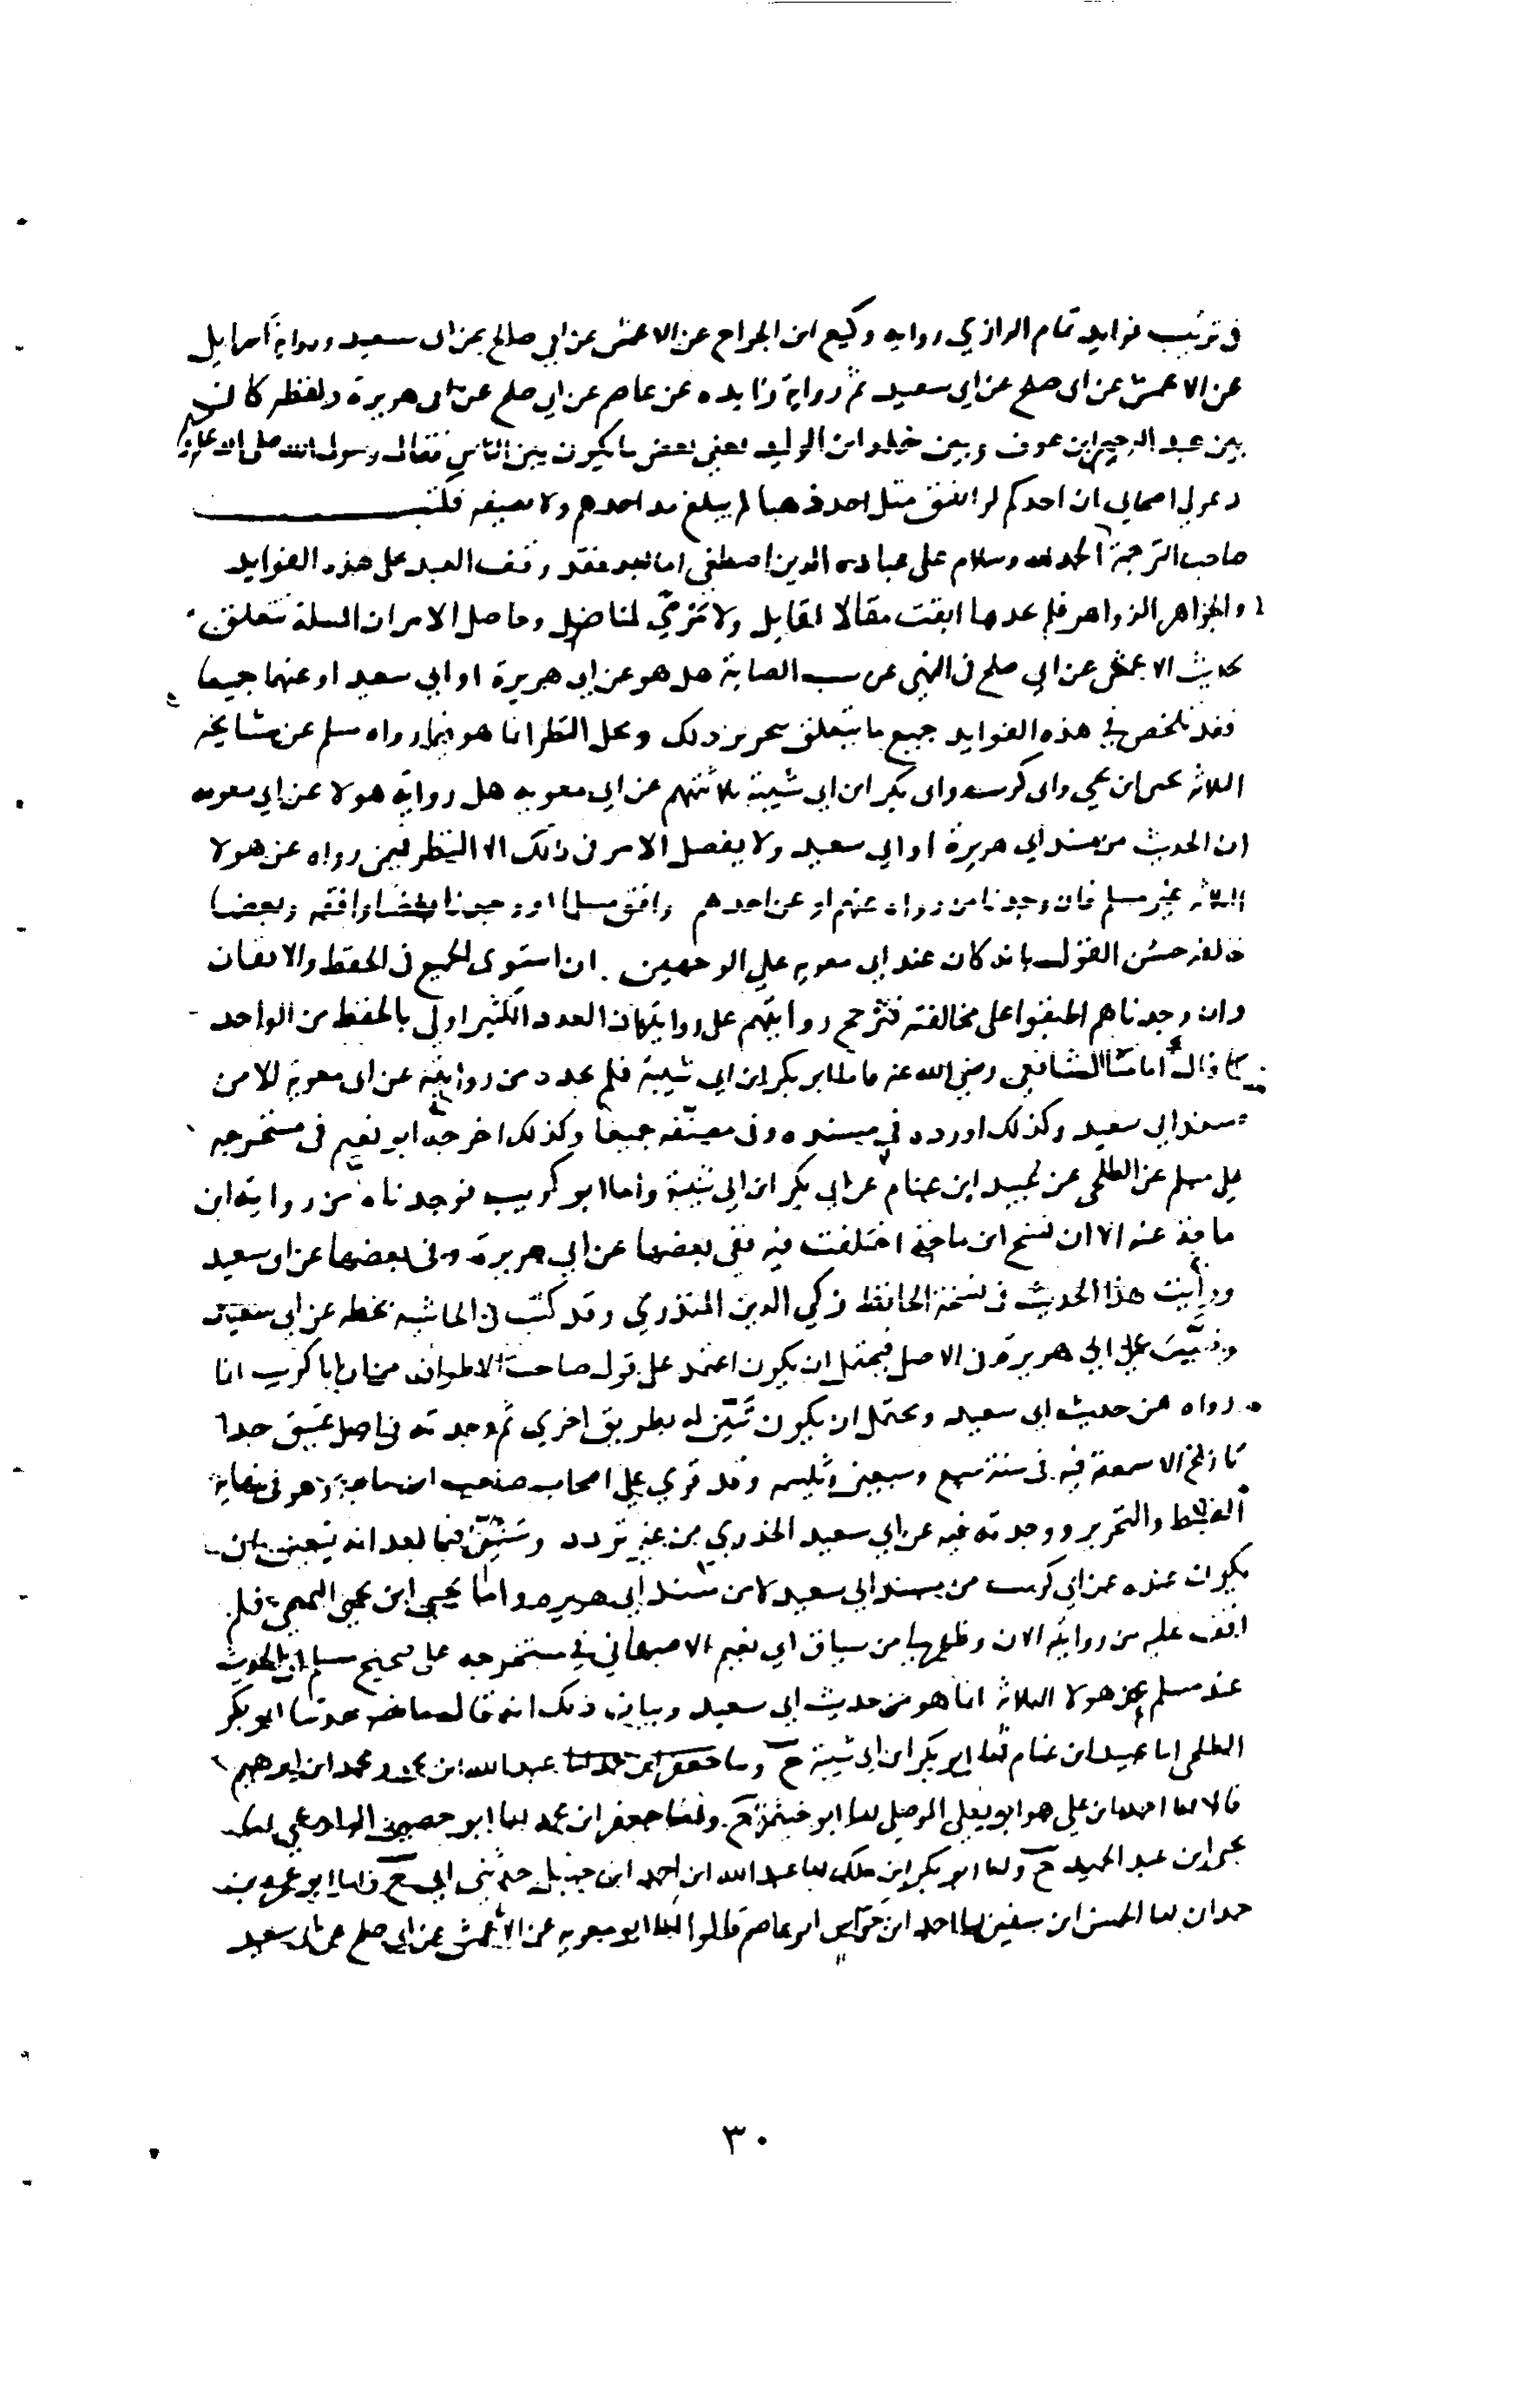 في ترتيب فوايد تمام الرازي رواية وكيع ابن الجراح عن الاعمش عن ابي صالح عن ابى سعيد ورواية اسرايل
عن الاعمش عن ابى صلح عن ابي سعيد ثم رواية زايده عن عاصم عن ابي صلح عن ابى هريرة ولفظه كان
بين عبد الرحمن ابن عوف وبين خلد ابن الوليد يعني بعض ما يكون بين الناس فقال رسول الله صلى الله عليه
دعو لي اصحابي ان احدكم لو انفق مثل احد ذهبا لم يبلغ مد احدهم ولا نصيفه فكتب
صاحب الترجمة الحمد لله وسلام على عباده الذين اصطفى اما بعد فقد وقف العبد على هذه الفوايد
والجواهر الزواهر فلم ابقت مقالا لقايل ولا لمناضل وحاصل الامر ان المسلة تتعلق
بحديث الاعمش عن ابي صلح في النهي عن سب الصحابة هل هو عن ابي هريرة او ابي سعيد او عنهما جميعا
فقد تلخص في هذه الفوايد جميع ما يتعلق بتحرير ذلك ومحل النظر انما هو فيما رواه مسلم عن مشايخه
الثلاثة يحيى ابن يحيى وابى كريب وابى بكر ابن ابي شيبة ثلاثتهم عن ابي معويه هل رواية هولا عن ابي معويه
ان الحديث من مسند ابي هريرة او ابي سعيد ولا يفصل الامر في ذلك الا النظر فيمن رواه عن هولا
الثلاثة غير مسلم فان وجدنا من رواه عنهم او عن احدهم وافق مسلما او وجدنا بعضا وافقه وبعضا
خالفه حسن القول بانه كان عند ابي معويه علي الوجهين ان استوى الجميع في الحفظ والاتقان
وان وجدناهم اطبقوا على مخالفته فترجح روايتهم على روايته لان العدد الكثير اولى بالحفظ من الواحد
كما قال امامنا الشافعي رضي الله عنه فاما ابو بكر ابن ابي شيبة فلم نجده من روايته عن ابى معوية الا من
مسند ابي سعيد وكذلك اورده في مسنده وفى مصنفه جميعا وكذلك اخرجه ابو نعيم فى مستخرجه
على مسلم عن الطلحي عن عبيد ابن غنام عن ابي بكر ابن ابي شيبة واما ابو كريب فوجدناه من رواية ابن
ماجة عنه الا ان نسخ ابن ماجة اختلفت فيه ففى بعضها عن ابي هريرة وفى بعضها عن ابى سعيد
ورأيت هذا الحديث في نسخة الحافظ زكي الدين المنذري وقد كتب في الحاشية بخطه عن ابي سعيد
وضبب على ابي هريرة في الاصل فيحتمل ان يكون اعتمد على قول صاحب الاطراف ان ابا كريب انما
رواه من حديث ابى سعيد ويحتمل ان يكون تبين له بطريق اخرى ثم وجدته فى اصل عتيق جدا
تاريخ الاسمعة فيه في سنة سبع وسبعين وثلثمايه وقد قري على اصحاب صاحب ابن ماجة وهو في نهاية
الضبط والتحرير ووجدته فيه عن ابي سعيد الخدري من غير تردد وسنبين فيما بعد انه يتعين ان
يكون عنده عن ابي كريب من مسند ابي سعيد لا من مسند ابي هريره واما يحيى ابن يحيى التميمي فلم
اقف عليه من روايته الان وظهر لي من سياق ابي نعيم الاصبهاني في مستخرجه على صحيح مسلم ان الحديث
عند مسلم عن هولا الثلاثة انما هو من حديث ابي سعيد وبيان ذلك انه قال ما نصه حدثنا ابو بكر
الطلحى ثنا عبيد ابن غنام ثنا ابو بكر ابن ابي شيبة ح وثنا عبد الله ابن محمد ومحمد ابن ابرهيم
قالا ثنا احمد ابن علي هو ابو يعلى الموصلي ثنا ابو خيثمة ح وثنا جعفر ابن محمد ثنا ابو حصين الوادعي ثنا
يحيى ابن عبد الحميد ح وثنا ابو بكر ابن ملك ثنا عبد الله ابن احمد ابن حنبل حدثني ابي ح وثنا ابو عمرو بن
حمدان ثنا الحسن ابن سفين ثنا احمد ابن جواس ابو عاصم قالوا ثنا ابو معويه عن الاعمش عن ابي صلح عن ابى سعيد
٣٠